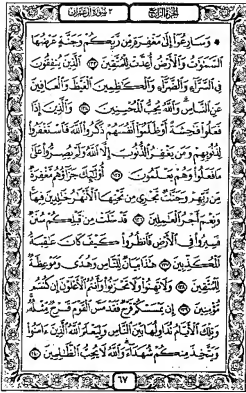 الجزء الرابع
٣ سورة آل عمران
* وَسَارِعُوٓا۟ إِلَىٰ مَغْفِرَةٍ مِّن رَّبِّكُمْ وَجَنَّةٍ عَرْضُهَا
ٱلسَّمَٰوَٰتُ وَٱلْأَرْضُ أُعِدَّتْ لِلْمُتَّقِينَ ١٣٣ ٱلَّذِينَ يُنفِقُونَ
فِى ٱلسَّرَّآءِ وَٱلضَّرَّآءِ وَٱلْكَٰظِمِينَ ٱلْغَيْظَ وَٱلْعَافِينَ
عَنِ ٱلنَّاسِ وَٱللَّهُ يُحِبُّ ٱلْمُحْسِنِينَ ١٣٤ وَٱلَّذِينَ إِذَا
فَعَلُوا۟ فَٰحِشَةً أَوْ ظَلَمُوٓا۟ أَنفُسَهُمْ ذَكَرُوا۟ ٱللَّهَ فَٱسْتَغْفَرُوا۟
لِذُنُوبِهِمْ وَمَن يَغْفِرُ ٱلذُّنُوبَ إِلَّا ٱللَّهُ وَلَمْ يُصِرُّوا۟ عَلَىٰ
مَا فَعَلُوا۟ وَهُمْ يَعْلَمُونَ ١٣٥ أُو۟لَٰٓئِكَ جَزَآؤُهُم مَّغْفِرَةٌ
مِّن رَّبِّهِمْ وَجَنَّٰتٌ تَجْرِى مِن تَحْتِهَا ٱلْأَنْهَٰرُ خَٰلِدِينَ فِيهَا
وَنِعْمَ أَجْرُ ٱلْعَٰمِلِينَ ١٣٦ قَدْ خَلَتْ مِن قَبْلِكُمْ سُنَنٌ
فَسِيرُوا۟ فِى ٱلْأَرْضِ فَٱنظُرُوا۟ كَيْفَ كَانَ عَٰقِبَةُ
ٱلْمُكَذِّبِينَ ١٣٧ هَٰذَا بَيَانٌ لِّلنَّاسِ وَهُدًى وَمَوْعِظَةٌ
لِّلْمُتَّقِينَ ١٣٨ وَلَا تَهِنُوا۟ وَلَا تَحْزَنُوا۟ وَأَنتُمُ ٱلْأَعْلَوْنَ إِن كُنتُم
مُّؤْمِنِينَ ١٣٩ إِن يَمْسَسْكُمْ قَرْحٌ فَقَدْ مَسَّ ٱلْقَوْمَ قَرْحٌ مِّثْلُهُۥ
وَتِلْكَ ٱلْأَيَّامُ نُدَاوِلُهَا بَيْنَ ٱلنَّاسِ وَلِيَعْلَمَ ٱللَّهُ ٱلَّذِينَ ءَامَنُوا۟
وَيَتَّخِذَ مِنكُمْ شُهَدَآءَ وَٱللَّهُ لَا يُحِبُّ ٱلظَّٰلِمِينَ ١٤٠
٦٧